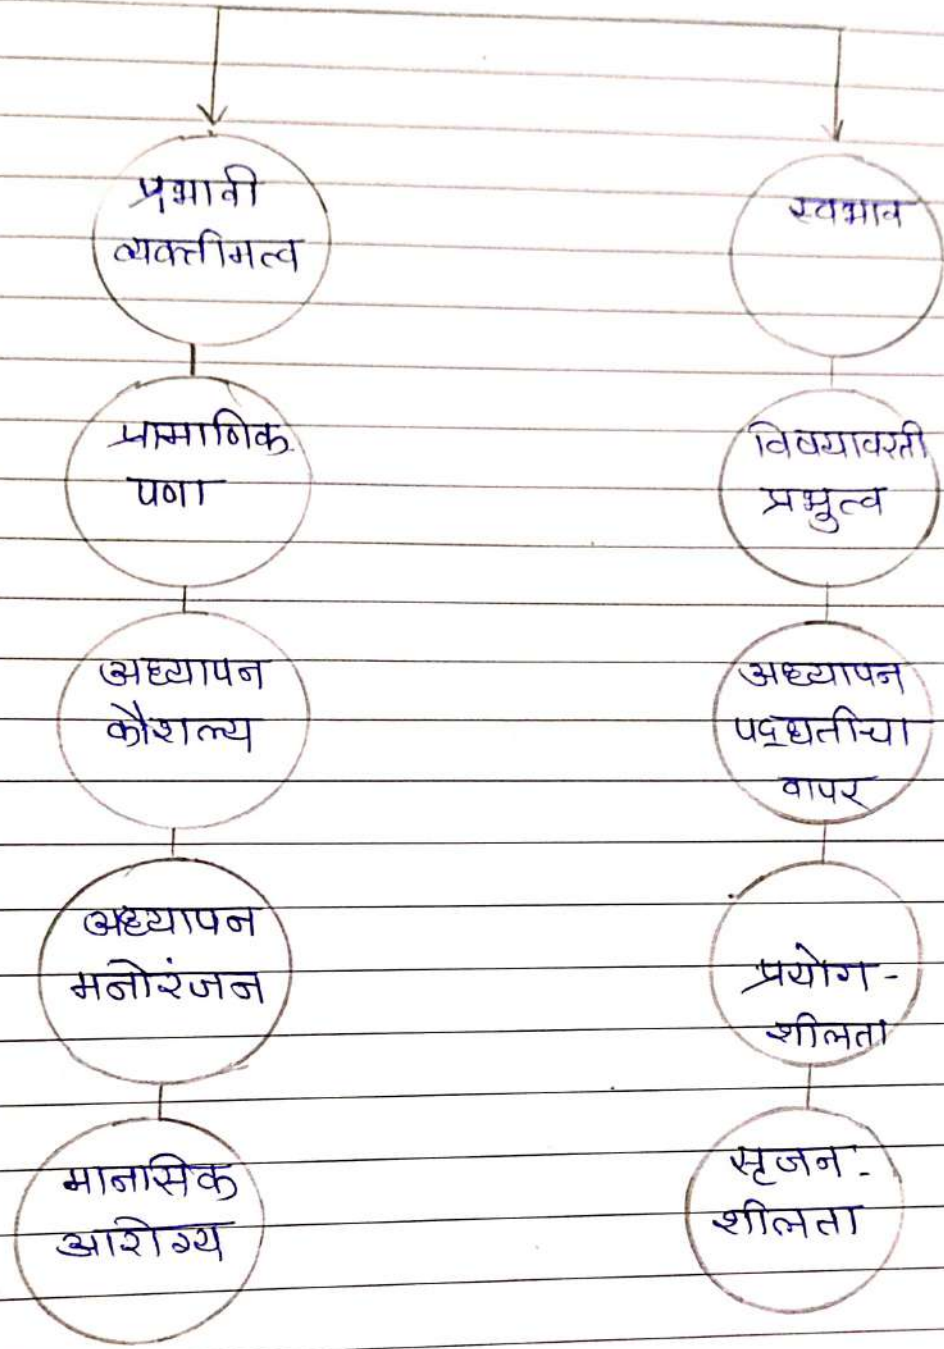 प्रभावी
व्यक्तीमत्व
प्रामाणिक
पणा
अध्यापन
कौशल्य
अध्यापन
मनोरंजन
मानसिक
आरोग्य
स्वभाव
विषयावरती
प्रभुत्व
अध्यापन
पद्धतीचा
वापर
प्रयोग-
शीलता
सृजन-
शीलता